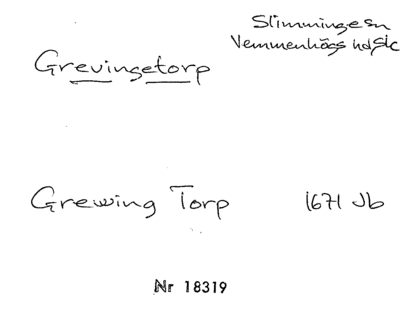 Slimminge sn
Vemmenhögs hd Sk
Grevingetorp
Grewing Torp 1671 Jb
Nr 18319